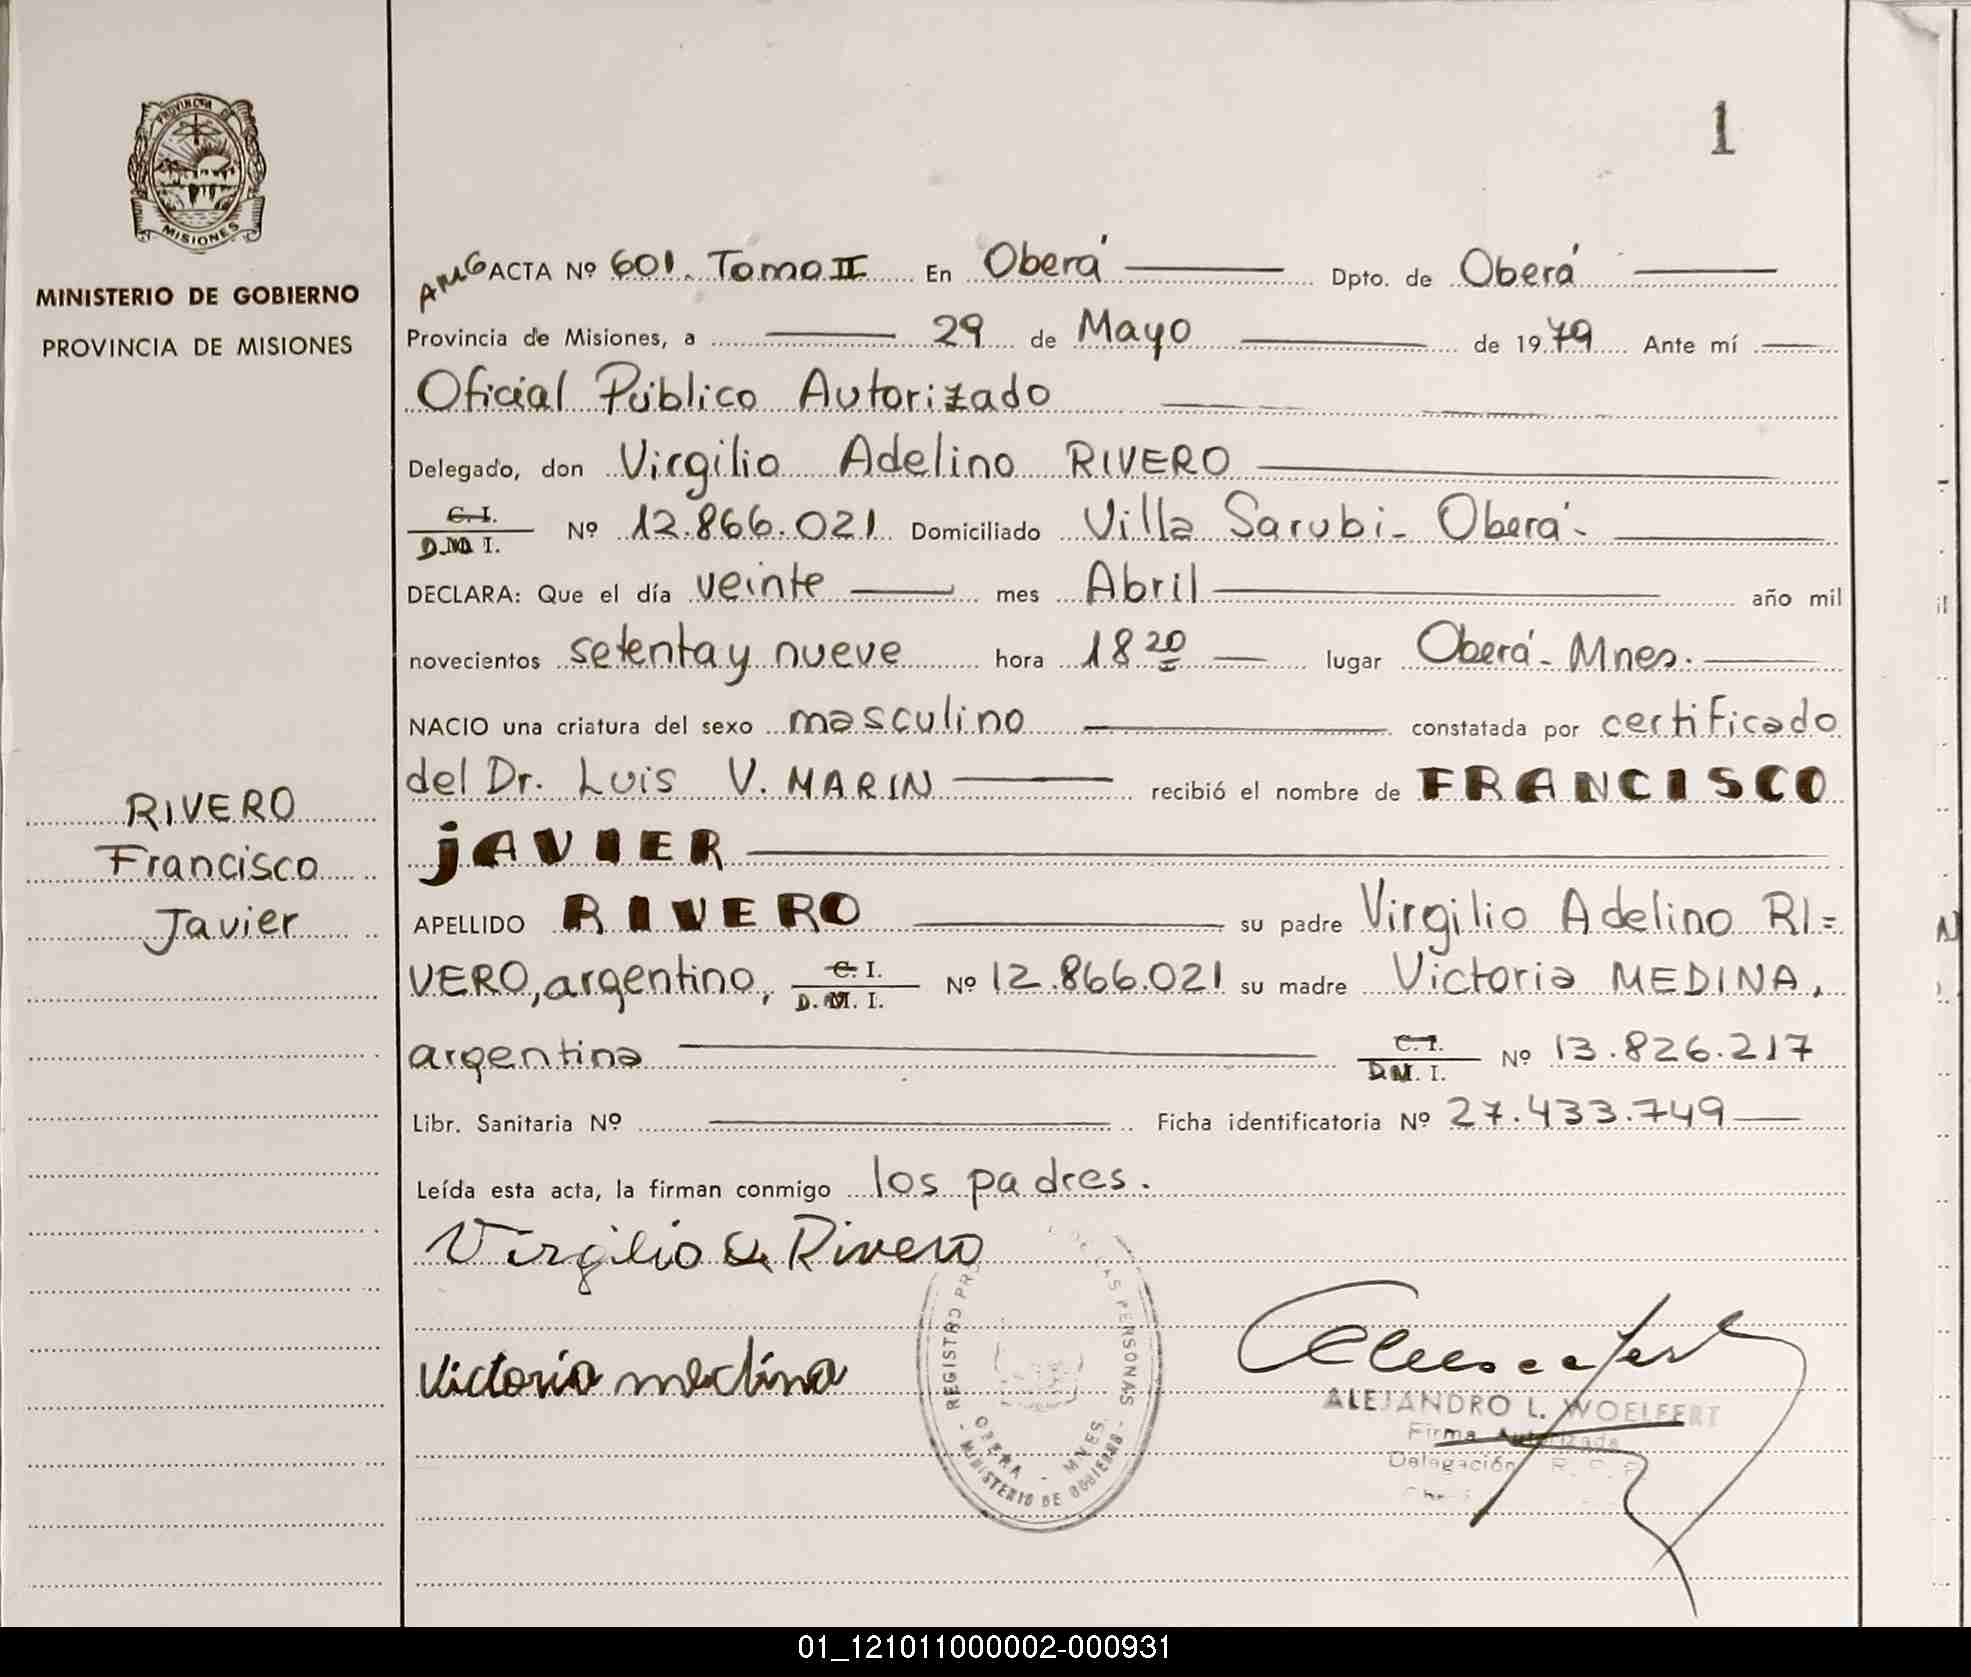 PROVINCIA DE
MISIONES
MINISTERIO DE GOBIERNO
PROVINCIA DE MISIONES
RIVERO
Francisco
Javier
1
ACTA Nº 601. Tomo II En Oberá Dpto. de Oberá
Provincia de Misiones, a 29 de Mayo de 1979 Ante mí
Oficial Público Autorizado
Delegado, don Virgilio Adelino RIVERO
C. I.
D.M I. Nº 12.866.021 Domiciliado Villa Sarubi - Oberá -
DECLARA: Que el día veinte mes Abril año mil
novecientos setenta y nueve hora 18 20 lugar Oberá - Mnes.
NACIO una criatura del sexo masculino constatada por certificado
del Dr. Luis V. MARIN recibió el nombre de FRANCISCO
jAVIER
APELLIDO RIVERO su padre Virgilio Adelino RI=
VERO, argentino, C. I. D. M. I. Nº 12.866.021 su madre Victoria MEDINA,
argentina C. I. D.M. I. Nº 13.826.217
Libr. Sanitaria Nº Ficha identificatoria Nº 27.433.749
Leída esta acta, la firman conmigo los padres.
Virgilio a Rivero
Victoria medina
REGISTRO DE LAS PERSONAS
OBERA - MNES.
- MINISTERIO DE GOBIERNO -
ALEJANDRO L. WOELFERT
Firma Autorizada
Delegación R. P.
01_121011000002-000931